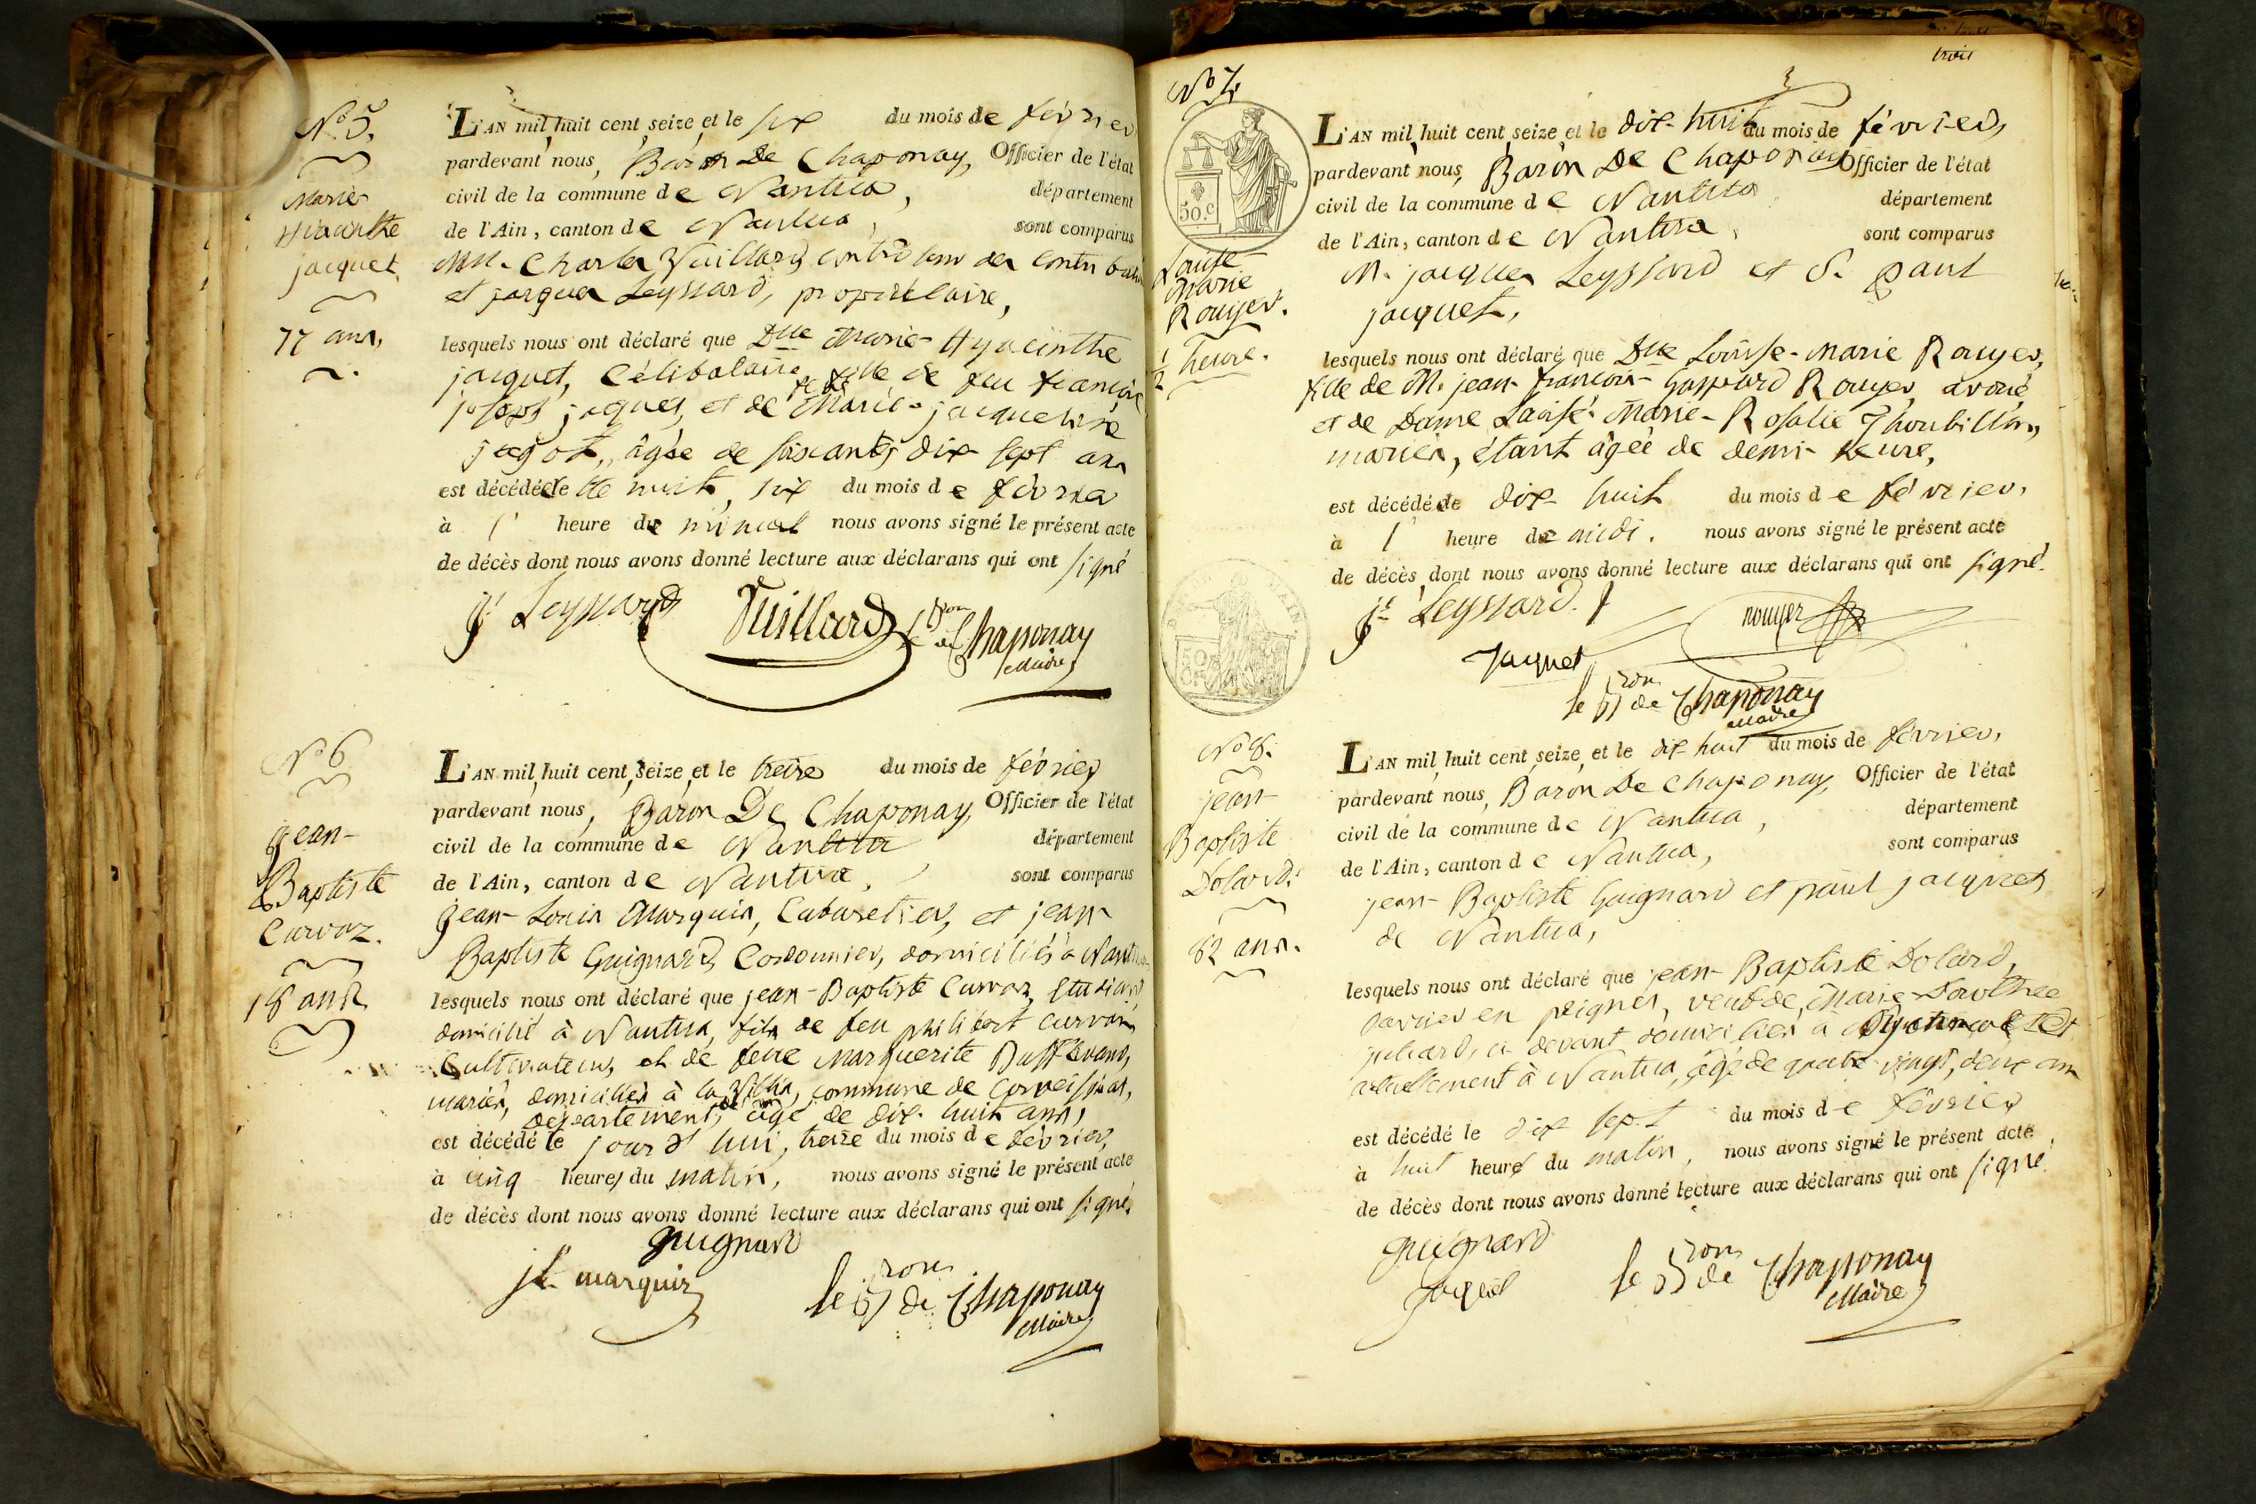 N° 5.
Marie
Hiacinthe
jacquet
77 ans.
L'AN mil huit cent seize et le six du mois de février
pardevant nous, Baron De Chaponay, Officier de l'état
civil de la commune de Nantua, département
de l'Ain, canton de Nantua, sont comparus
MM. Charles Vuillard, controleur des
et jacques Leyssard, propriétaire,
lesquels nous ont déclaré que Dlle Marie-Hyacinthe
jacquet, Célibataire, fille de feu françois
joseph jacquet, et de Marie-jacqueline
jagot, âgée de soixante dix sept ans
est décédée cette nuit, six du mois de février
à 1 heure de minuit nous avons signé le présent acte
de décès dont nous avons donné lecture aux déclarans qui ont signé
Js Leyssard Vuillard le Bon de Chaponay
Maire
N° 6
jean-
Baptiste
Curvaz.
18 ans
L'AN mil huit cent seize et le treize du mois de février
pardevant nous, Baron De Chaponay, Officier de l'état
civil de la commune de Nantua département
de l'Ain, canton de Nantua, sont comparus
jean-Louis Marquis, Cabaretier, et jean
Baptiste Guignard, Cordonnier, domiciliés à Nantua
lesquels nous ont déclaré que jean-Baptiste Curvaz, étudiant
domicilié à Nantua, fils de feu philibert curvaz,
Cultivateur, et de feue Marguerite
mariés, domiciliés à la Villa, commune de Corveissiat,
département de l'Ain, âgé de dix-huit ans,
est décédé le jour d'hui, treize du mois de février,
à cinq heures du matin, nous avons signé le présent acte
de décès dont nous avons donné lecture aux déclarans qui ont signé,
guignard
jL marquis le Bon de Chaponay
Maire
trois
N° 7.
50.c
Louise
Marie
Rouyer.
1/2 heure.
L'AN mil huit cent seize et le dix-huit du mois de février,
pardevant nous, Baron De Chaponay Officier de l'état
civil de la commune de Nantua département
de l'Ain, canton de Nantua, sont comparus
M. jacques Leyssard et S. paul
jacquet,
lesquels nous ont déclaré que Dlle Louise-Marie Rouyer,
fille de M. jean-françois-Gaspard Rouyer, avoué,
et de Dame Louise-Marie-Rosalie Thoubillon,
mariés, étant âgée de demi-heure,
est décédée le dix-huit du mois de février,
à 1 heure de midi. nous avons signé le présent acte
de décès dont nous avons donné lecture aux déclarans qui ont signé.
Js Leyssard. rouyer
Jacquet
le Bon de Chaponay
Maire
AIN
50
N° 8.
jean
Baptiste
Dolard.
82 ans.
L'AN mil huit cent seize et le dix-huit du mois de février,
pardevant nous, Baron De Chaponay, Officier de l'état
civil de la commune de Nantua, département
de l'Ain, canton de Nantua, sont comparus
jean-Baptiste Guignard et paul jacquet
de Nantua,
lesquels nous ont déclaré que jean-Baptiste Dolard,
ouvrier en peignes, veuf de Marie Dorothée
juliard, ci devant domiciliés à
actuellement à Nantua, âgé de quatre vingt, deux ans
est décédé le dix sept du mois de février
à huit heure du matin, nous avons signé le présent acte
de décès dont nous avons donné lecture aux déclarans qui ont signé.
guignard
jacquet le Bon de Chaponay
Maire